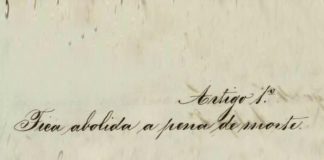 Artigo 1.º
Fica abolida a pena de morte.